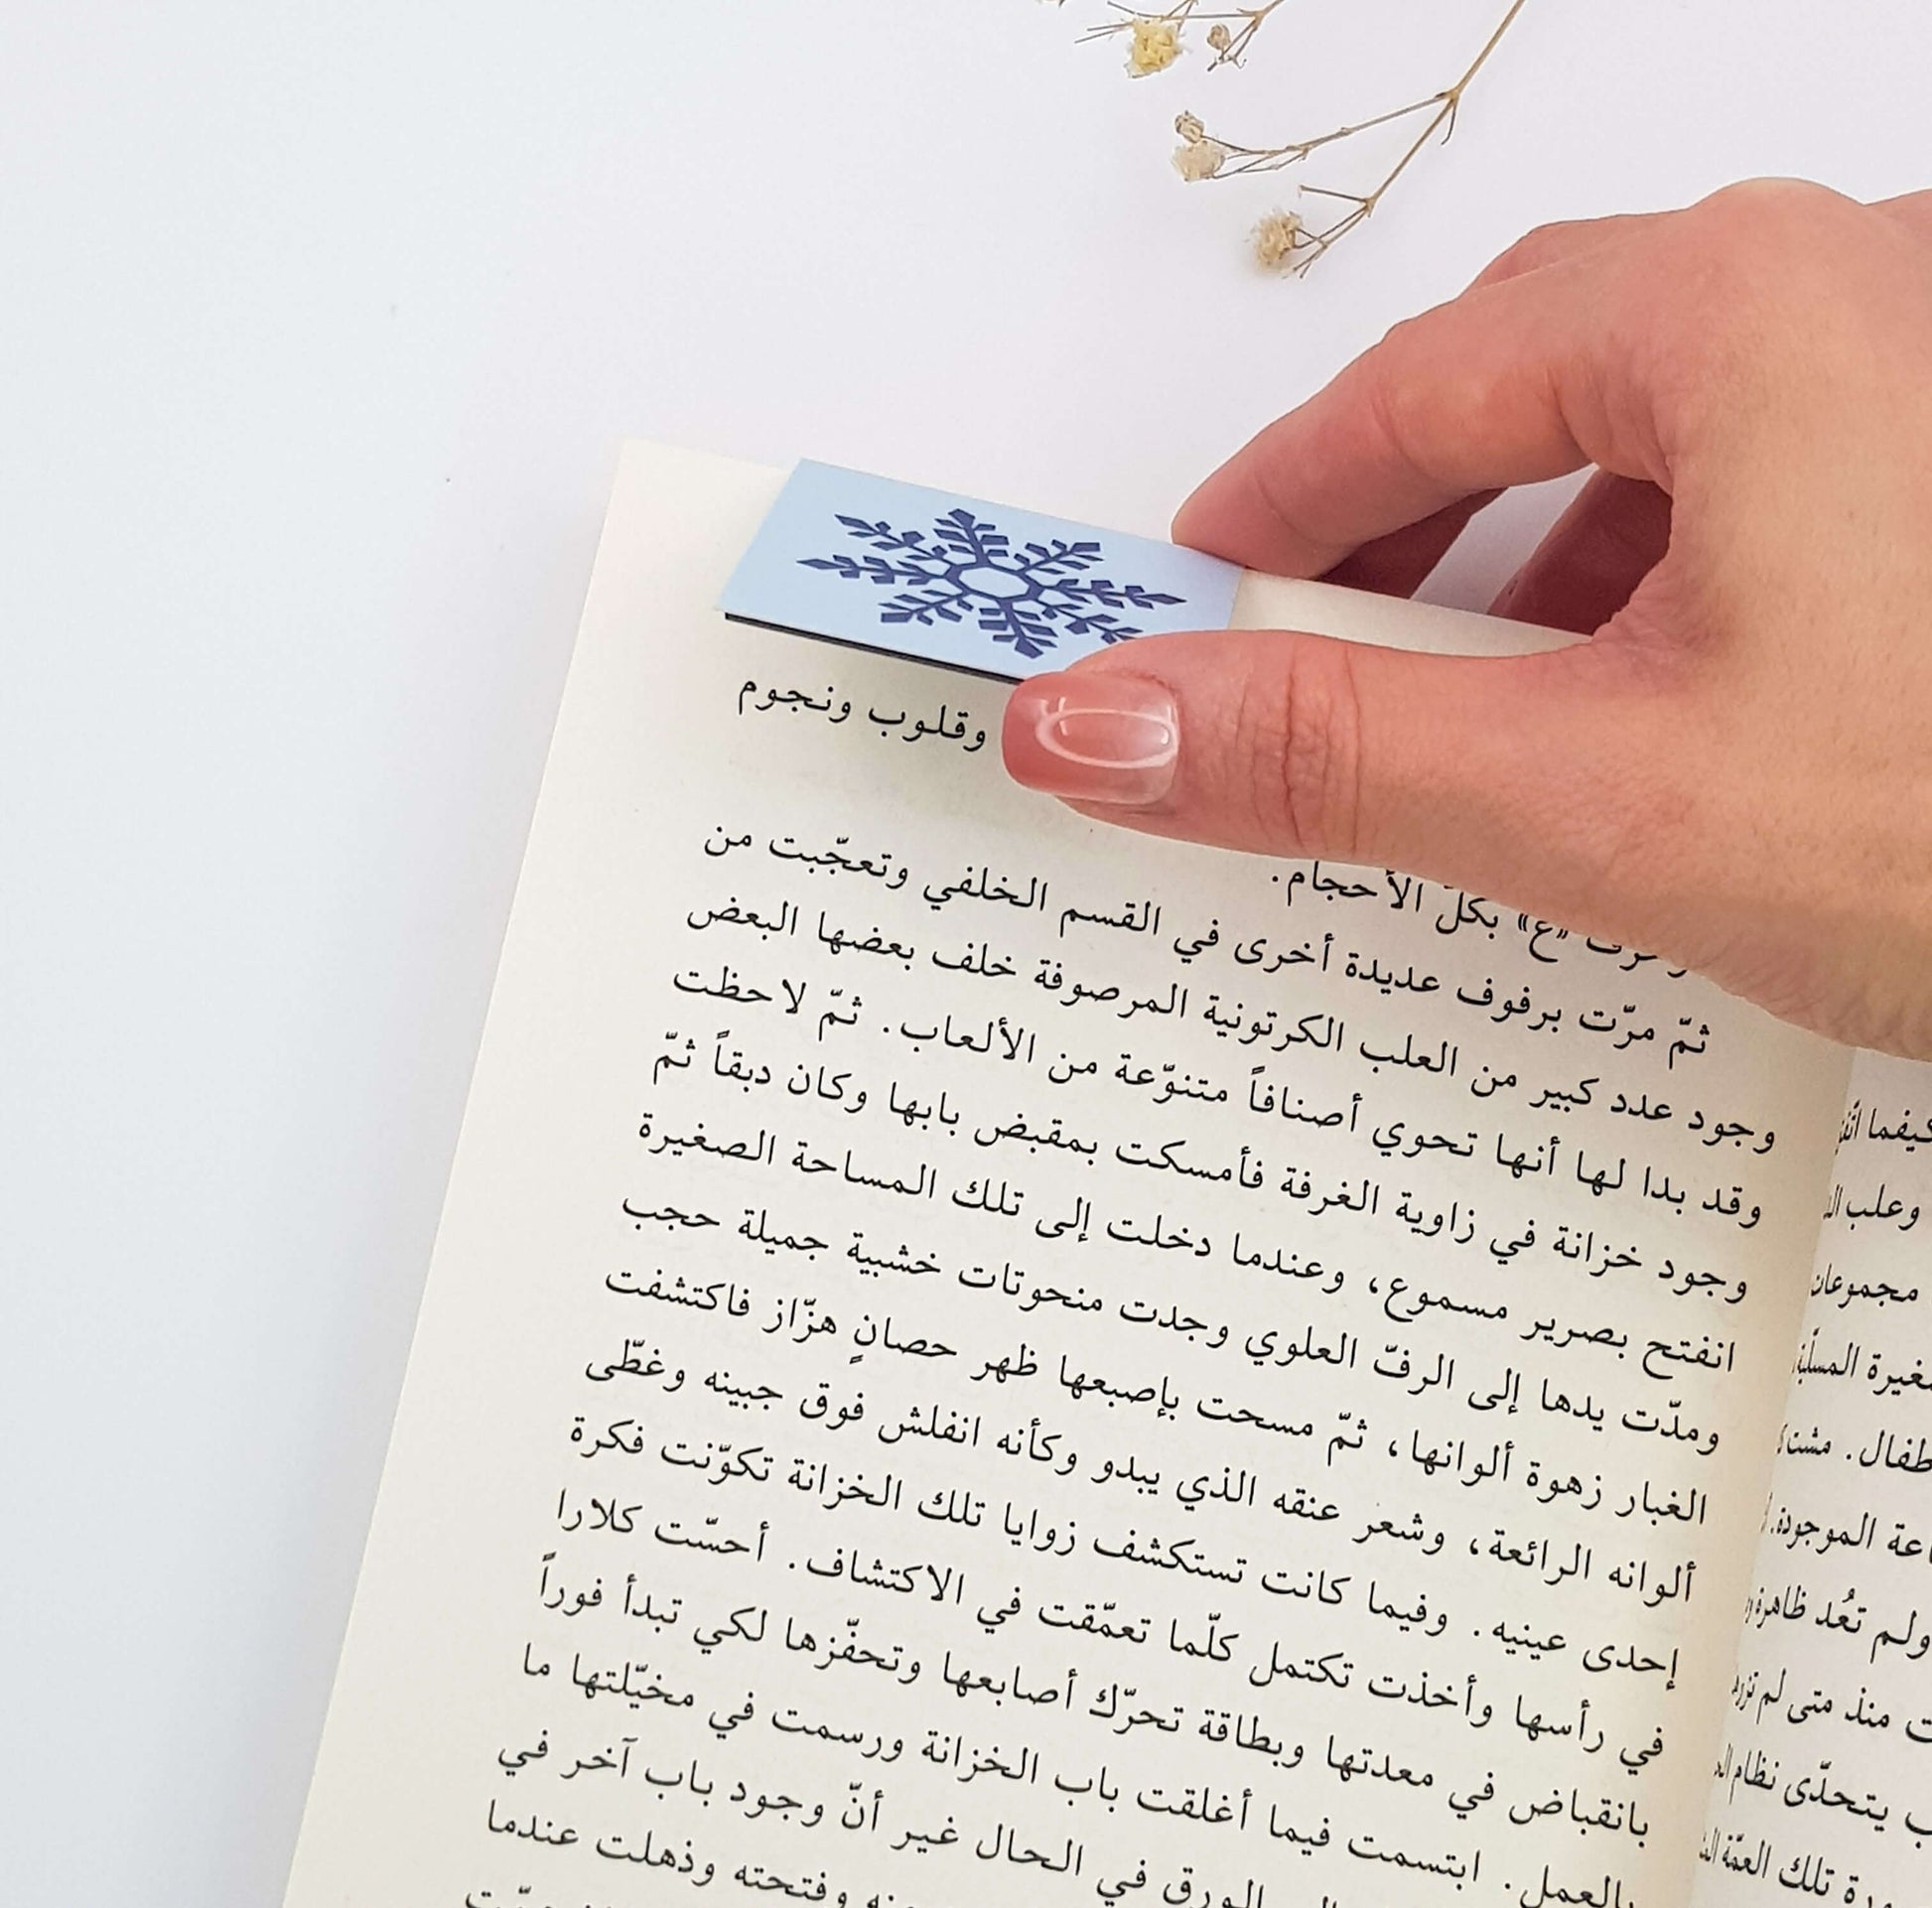 وقلوب ونجوم
«ع» بكلّ الأحجام.
ثمّ مرّت برفوف عديدة أخرى في القسم الخلفي وتعجّبت من
وجود عدد كبير من العلب الكرتونية المرصوفة خلف بعضها البعض
وقد بدا لها أنها تحوي أصنافاً متنوّعة من الألعاب. ثمّ لاحظت
وجود خزانة في زاوية الغرفة فأمسكت بمقبض بابها وكان دبقاً ثمّ
انفتح بصرير مسموع، وعندما دخلت إلى تلك المساحة الصغيرة
ومدّت يدها إلى الرفّ العلوي وجدت منحوتات خشبية جميلة حجب
الغبار زهوة ألوانها، ثمّ مسحت بإصبعها ظهر حصانٍ هزّاز فاكتشفت
ألوانه الرائعة، وشعر عنقه الذي يبدو وكأنه انفلش فوق جبينه وغطّى
إحدى عينيه. وفيما كانت تستكشف زوايا تلك الخزانة تكوّنت فكرة
في رأسها وأخذت تكتمل كلّما تعمّقت في الاكتشاف. أحسّت كلارا
بانقباض في معدتها وبطاقة تحرّك أصابعها وتحفّزها لكي تبدأ فوراً
بالعمل. ابتسمت فيما أغلقت باب الخزانة ورسمت في مخيّلتها ما
الورق في الحال غير أنّ وجود باب آخر في
وفتحته وذهلت عندما
كيفما
وعلب
الموجودة.
ولم تعُد ظاهرة
منذ متى لم
يتحدّى نظام
تلك العمّة